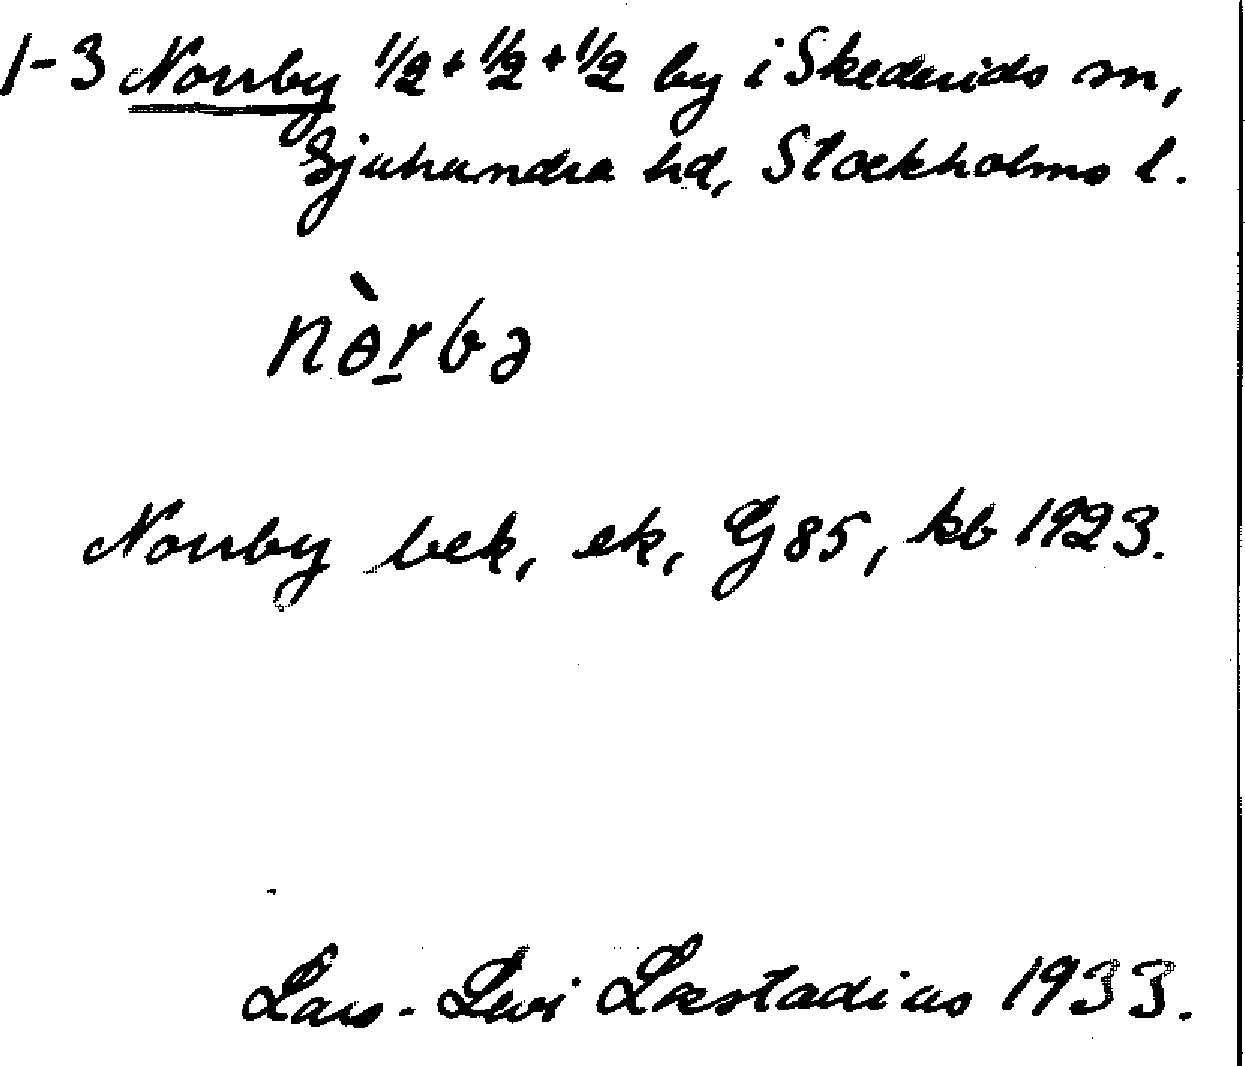 1-3 Norrby 1/2 + 1/2 + 1/2 by i Skederids sn,
Sjuhundra hd, Stockholms l.
nòrbə
Norrby bek, ek, G 85, kb 1923.
Lars-Levi Læstadius 1933.